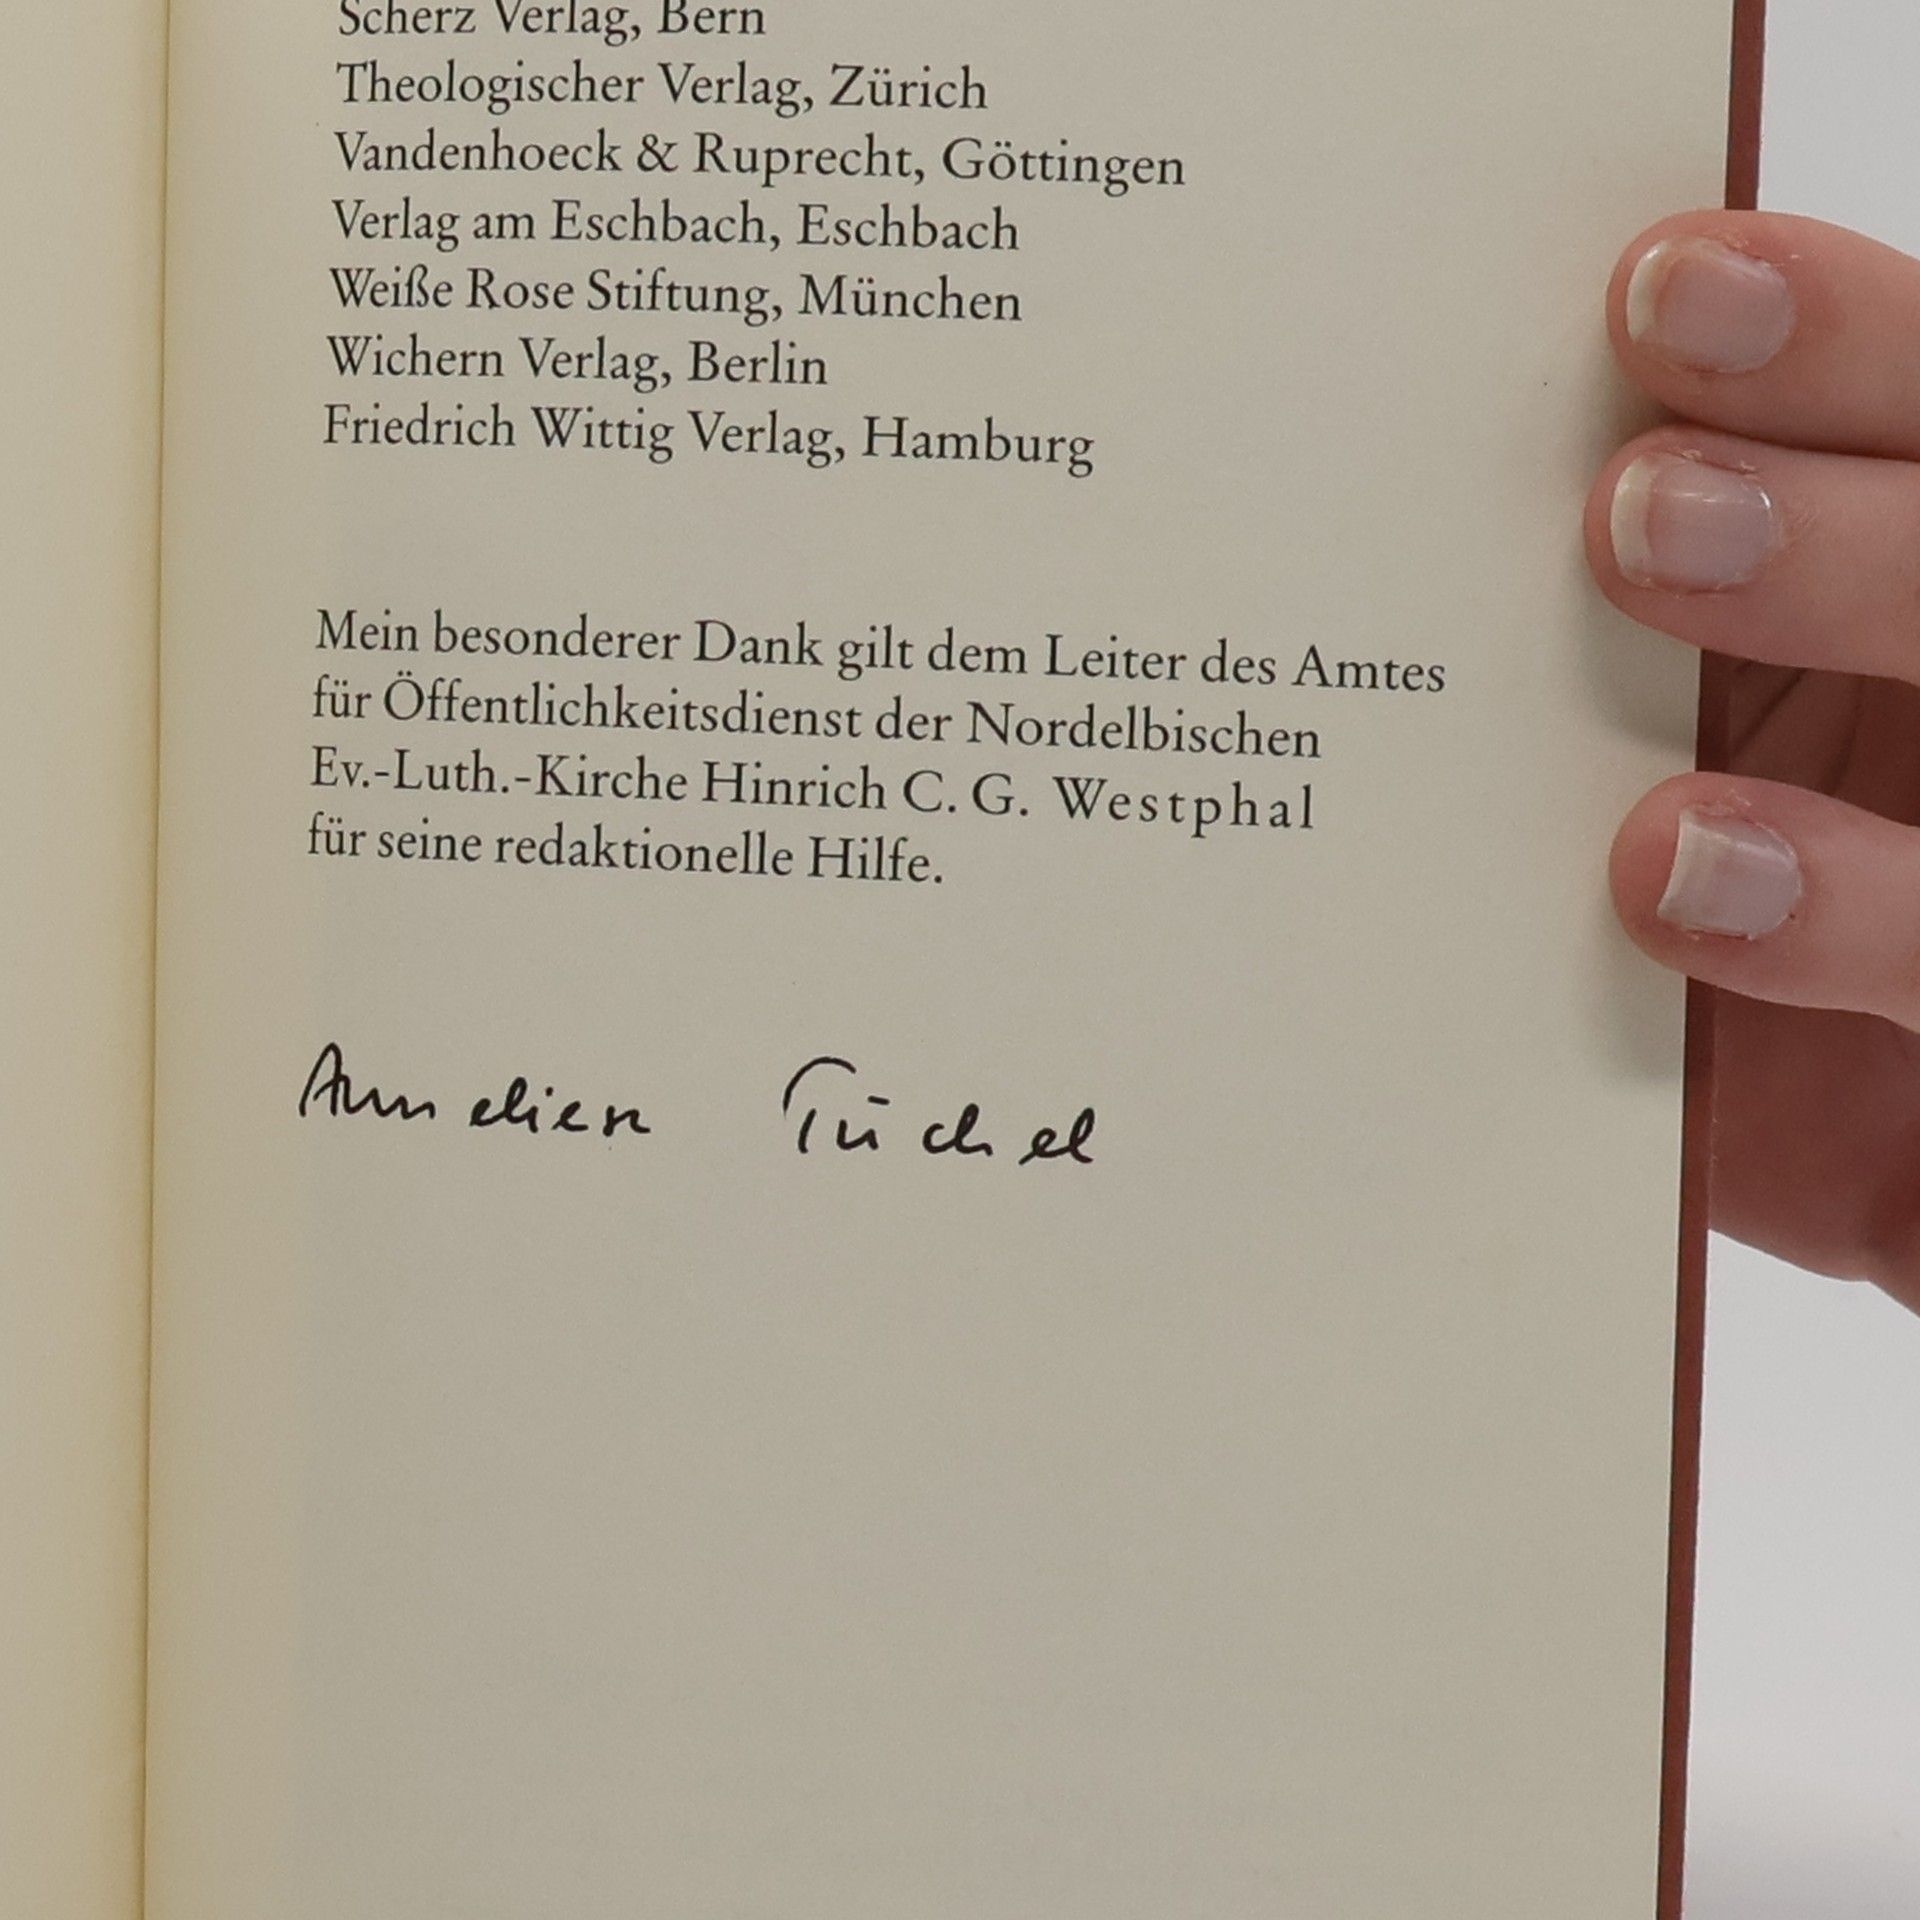 Scherz Verlag, Bern
Theologischer Verlag, Zürich
Vandenhoeck & Ruprecht, Göttingen
Verlag am Eschbach, Eschbach
Weiße Rose Stiftung, München
Wichern Verlag, Berlin
Friedrich Wittig Verlag, Hamburg
Mein besonderer Dank gilt dem Leiter des Amtes
für Öffentlichkeitsdienst der Nordelbischen
Ev.-Luth.-Kirche Hinrich C. G. Westphal
für seine redaktionelle Hilfe.
Annelien Tüchel